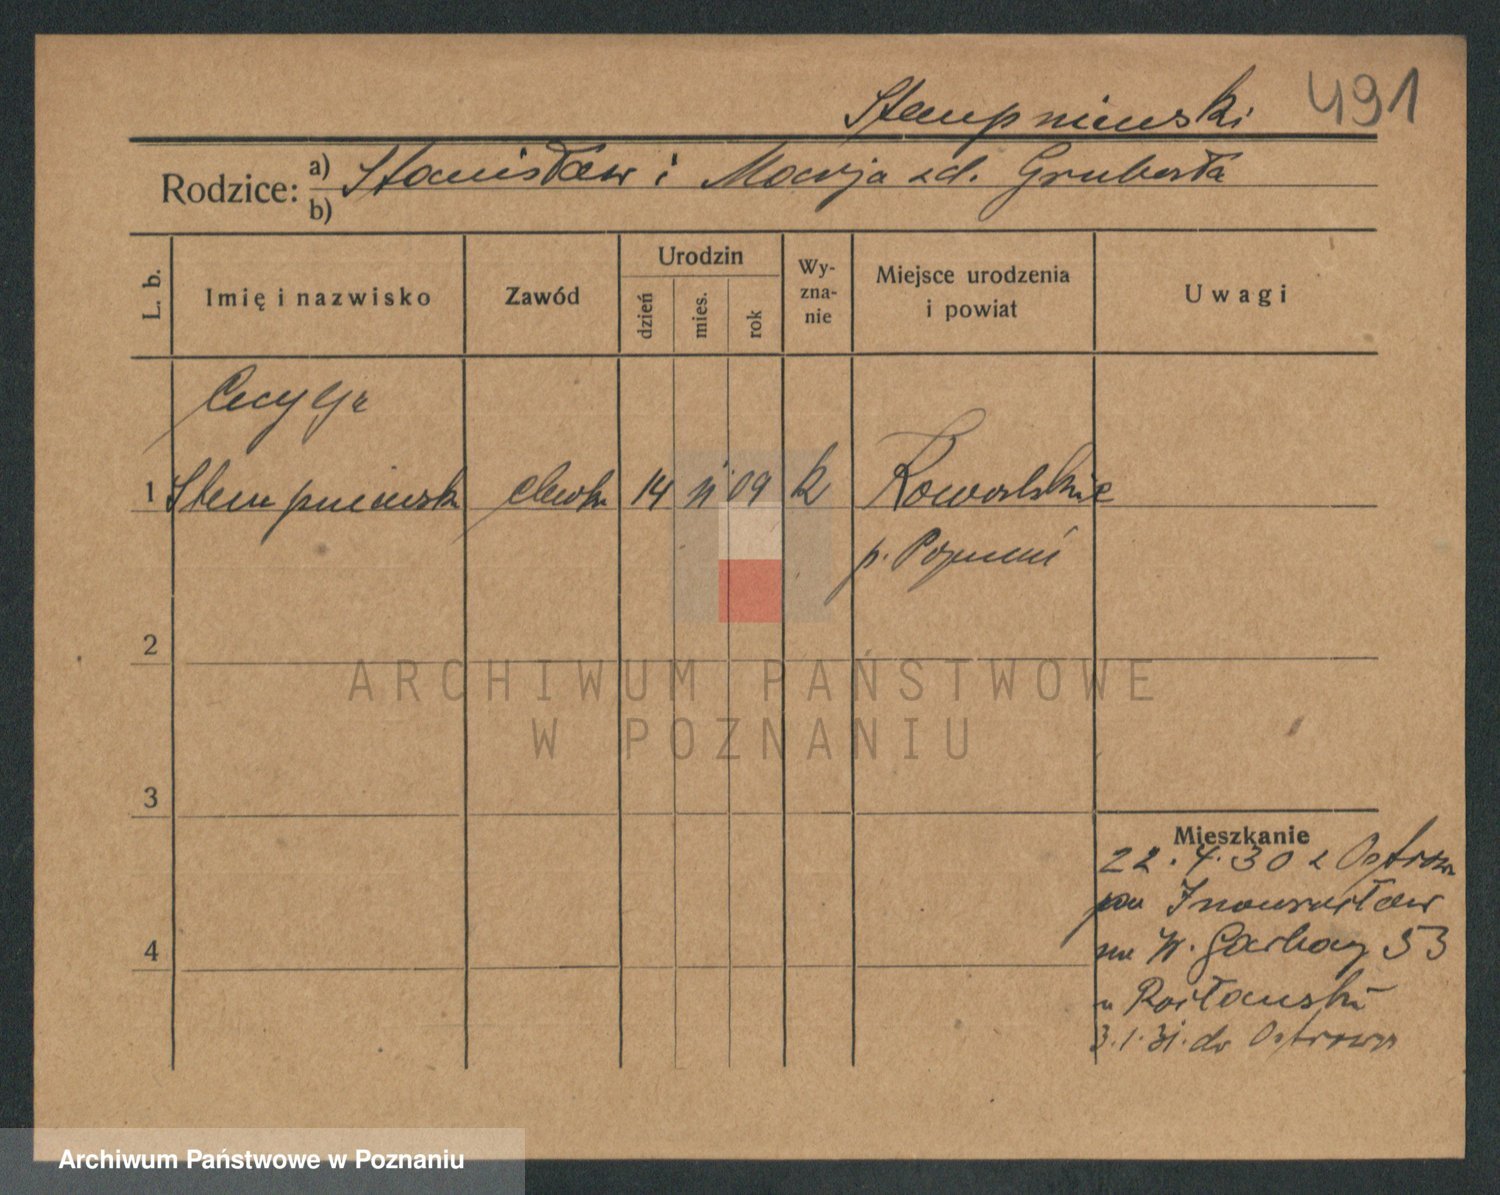 Stempniewski 491
Rodzice: a) Stanisław i Marja zd. Gruberta
b)
L. b. Imię i nazwisko Zawód Urodzin dzień mies. rok Wy-zna-nie Miejsce urodzenia i powiat Uwagi
Cecylja
1 Stempniewska 14 09 k Kowalskie
p. Poznań
2
3
4
Mieszkanie
22.4.30 z Ostrowa
pow Inowrocław
na W. Garbary 53
u
3.1.31. do Ostrowa
ARCHIWUM PAŃSTWOWE
W POZNANIU
Archiwum Państwowe w Poznaniu